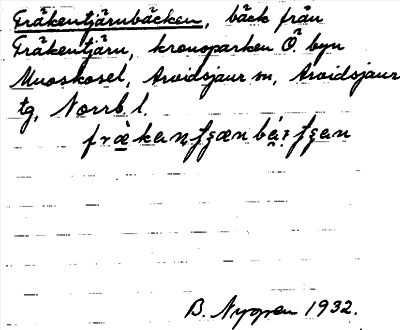 Fräkentjärnbäcken, bäck från
Fräkentjärn, kronoparken Ö byn
Muoskosel, Arvidsjaur sn, Arvidsjaur
tg, Norrb l.
B. Nygren 1932.